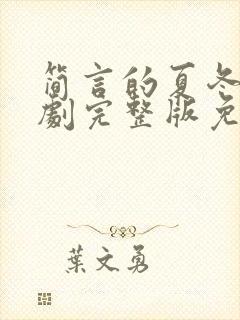 简言的夏冬
劇完整版免
葉文勇